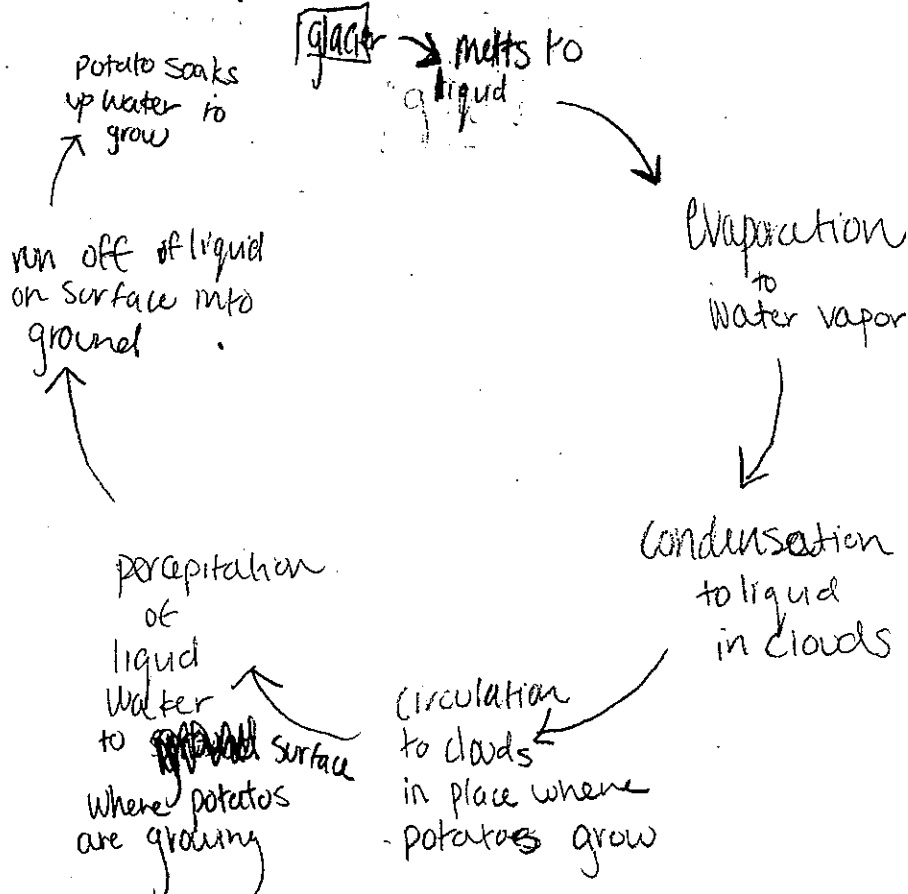 glacier
melts to
liquid
evaporation
to
water vapor
condensation
to liquid
in clouds
circulation
to clouds
in place where
potatoes grow
percipitation
of
liquid
water
to surface
where potatos
are growing
run off of liquid
on surface into
ground
potato soaks
up water to
grow